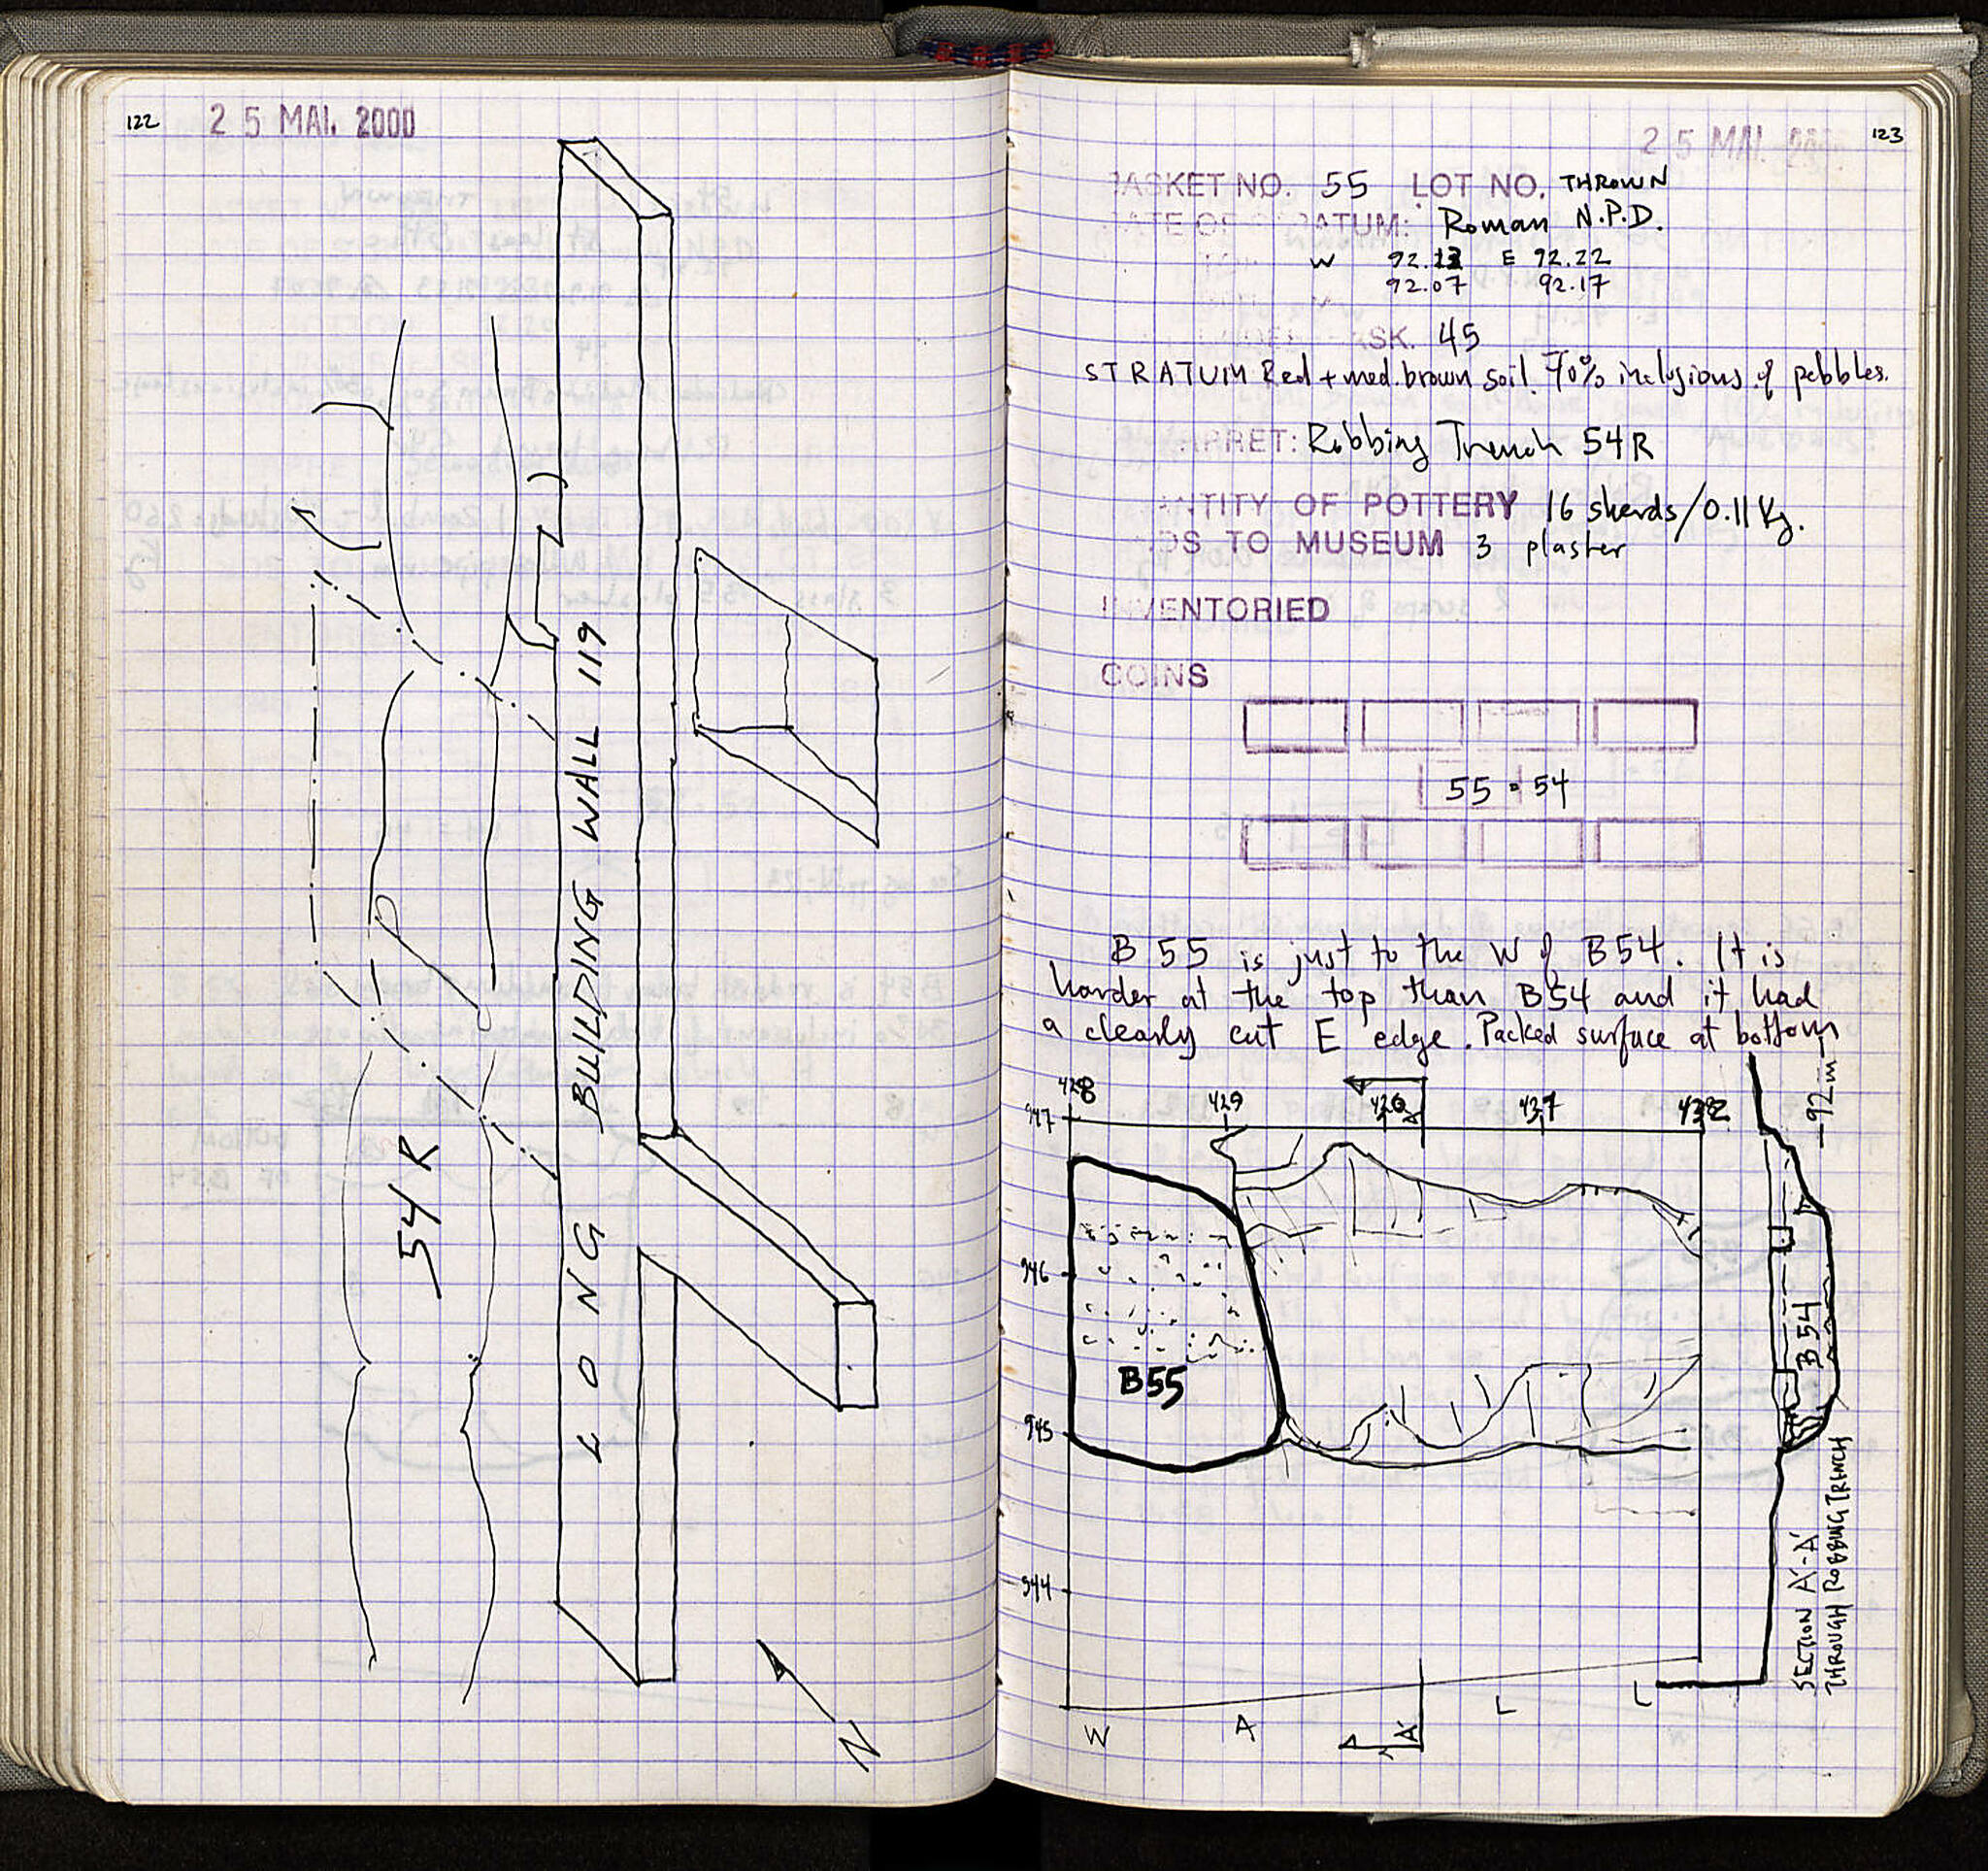 122
25 MAI. 2000
LONG BUILDING WALL 119
54 R
N
123
25 MAI.
BASKET NO. 55 LOT NO. THROWN
DATE OF STRATUM: Roman N.P.D.
W 92.13 E 92.22
92.07 92.17
UNDER BASK. 45
STRATUM Red + med. brown soil. 70% inclusions of pebbles.
Robbing Trench 54R
QUANTITY OF POTTERY 16 sherds/0.11 Kg.
TO MUSEUM 3 plaster
INVENTORIED
COINS
55 = 54
B 55 is just to the W of B54. It is
harder at the top than B54 and it had
a clearly cut E edge. Packed surface at bottom
428 429 A 432
947
92 m
946
B54
B55
945
944
SECTION A-A'
THROUGH ROBBING TRENCH
W A L L
A'